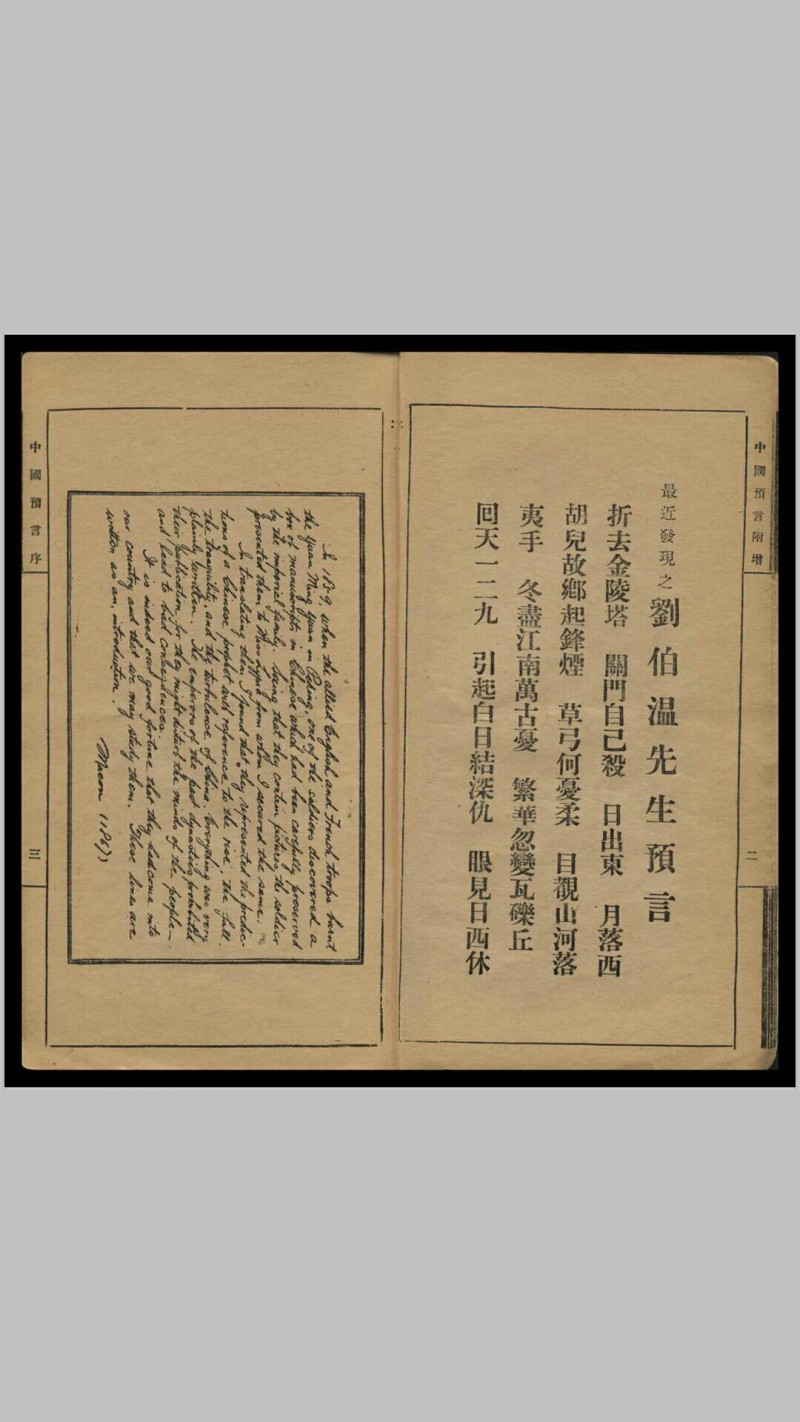 中國預言附增
二
最近發現之劉伯溫先生預言
折去金陵塔 關門自己殺 日出東 月落西
胡兒故鄉起鋒煙 草弓何憂柔 目覩山河落
夷手 冬盡江南萬古憂 繁華忽變瓦礫丘
回天一二九 引起白日結深仇 眼見日西休
In 1859, when the allied English and French troops burnt
the Yuan Ming Yuan in Peking, one of the soldiers discovered a
box of manuscripts in Chinese which had been carefully preserved
by the imperial family. Seeing that they contain pictures, the soldier
presented them to from whom I secured the same.
In translating them, I found that they represented the predic-
tions of a Chinese prophet with reference to the rise, the fall,
the tranquility, and the turbulence of China. Everything was very
plainly written. The emperors of the past dynasties prohibited
their publication for they might disturb the minds of the people
and lead to bad consequences.
It is indeed our good fortune that they had come into
our country and that we may study them. These lines are
written as an introduction.
中國預言序
三